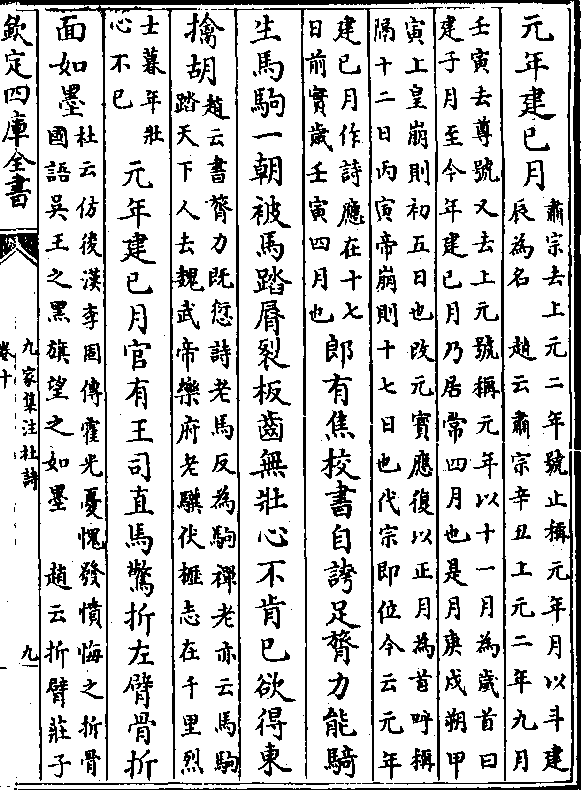 元年建巳月
肅宗去上元二年號止稱元年月以斗建
辰為名　趙云肅宗辛丑上元二年九月
壬寅去尊號又去上元號稱元年以十一月為歲首曰
建子月至今年建巳月乃居常四月也是月庚戌朔甲
寅上皇崩則初五日也改元寶應復以正月為首呼稱
隔十二日丙寅帝崩則十七日也代宗即位今云元年
建巳月作詩應在十七
日前實歲壬寅四月也
郎有焦校書自誇足膂力能騎
生馬駒一朝被馬踏脣裂板齒無壯心不肯已欲得東
擒胡
趙云書膂力既愆詩老馬反為駒禪老亦云馬駒
踏天下人去魏武帝樂府老驥伏櫪志在千里烈
士暮年壯
心不已
元年建巳月官有王司直馬驚折左臂骨折
面如墨
杜云仿後漢李固傳霍光憂愧發憤悔之折骨
國語吳王之黑旗望之如墨　趙云折臂莊子
欽定四庫全書
九家集注杜詩
卷十
九